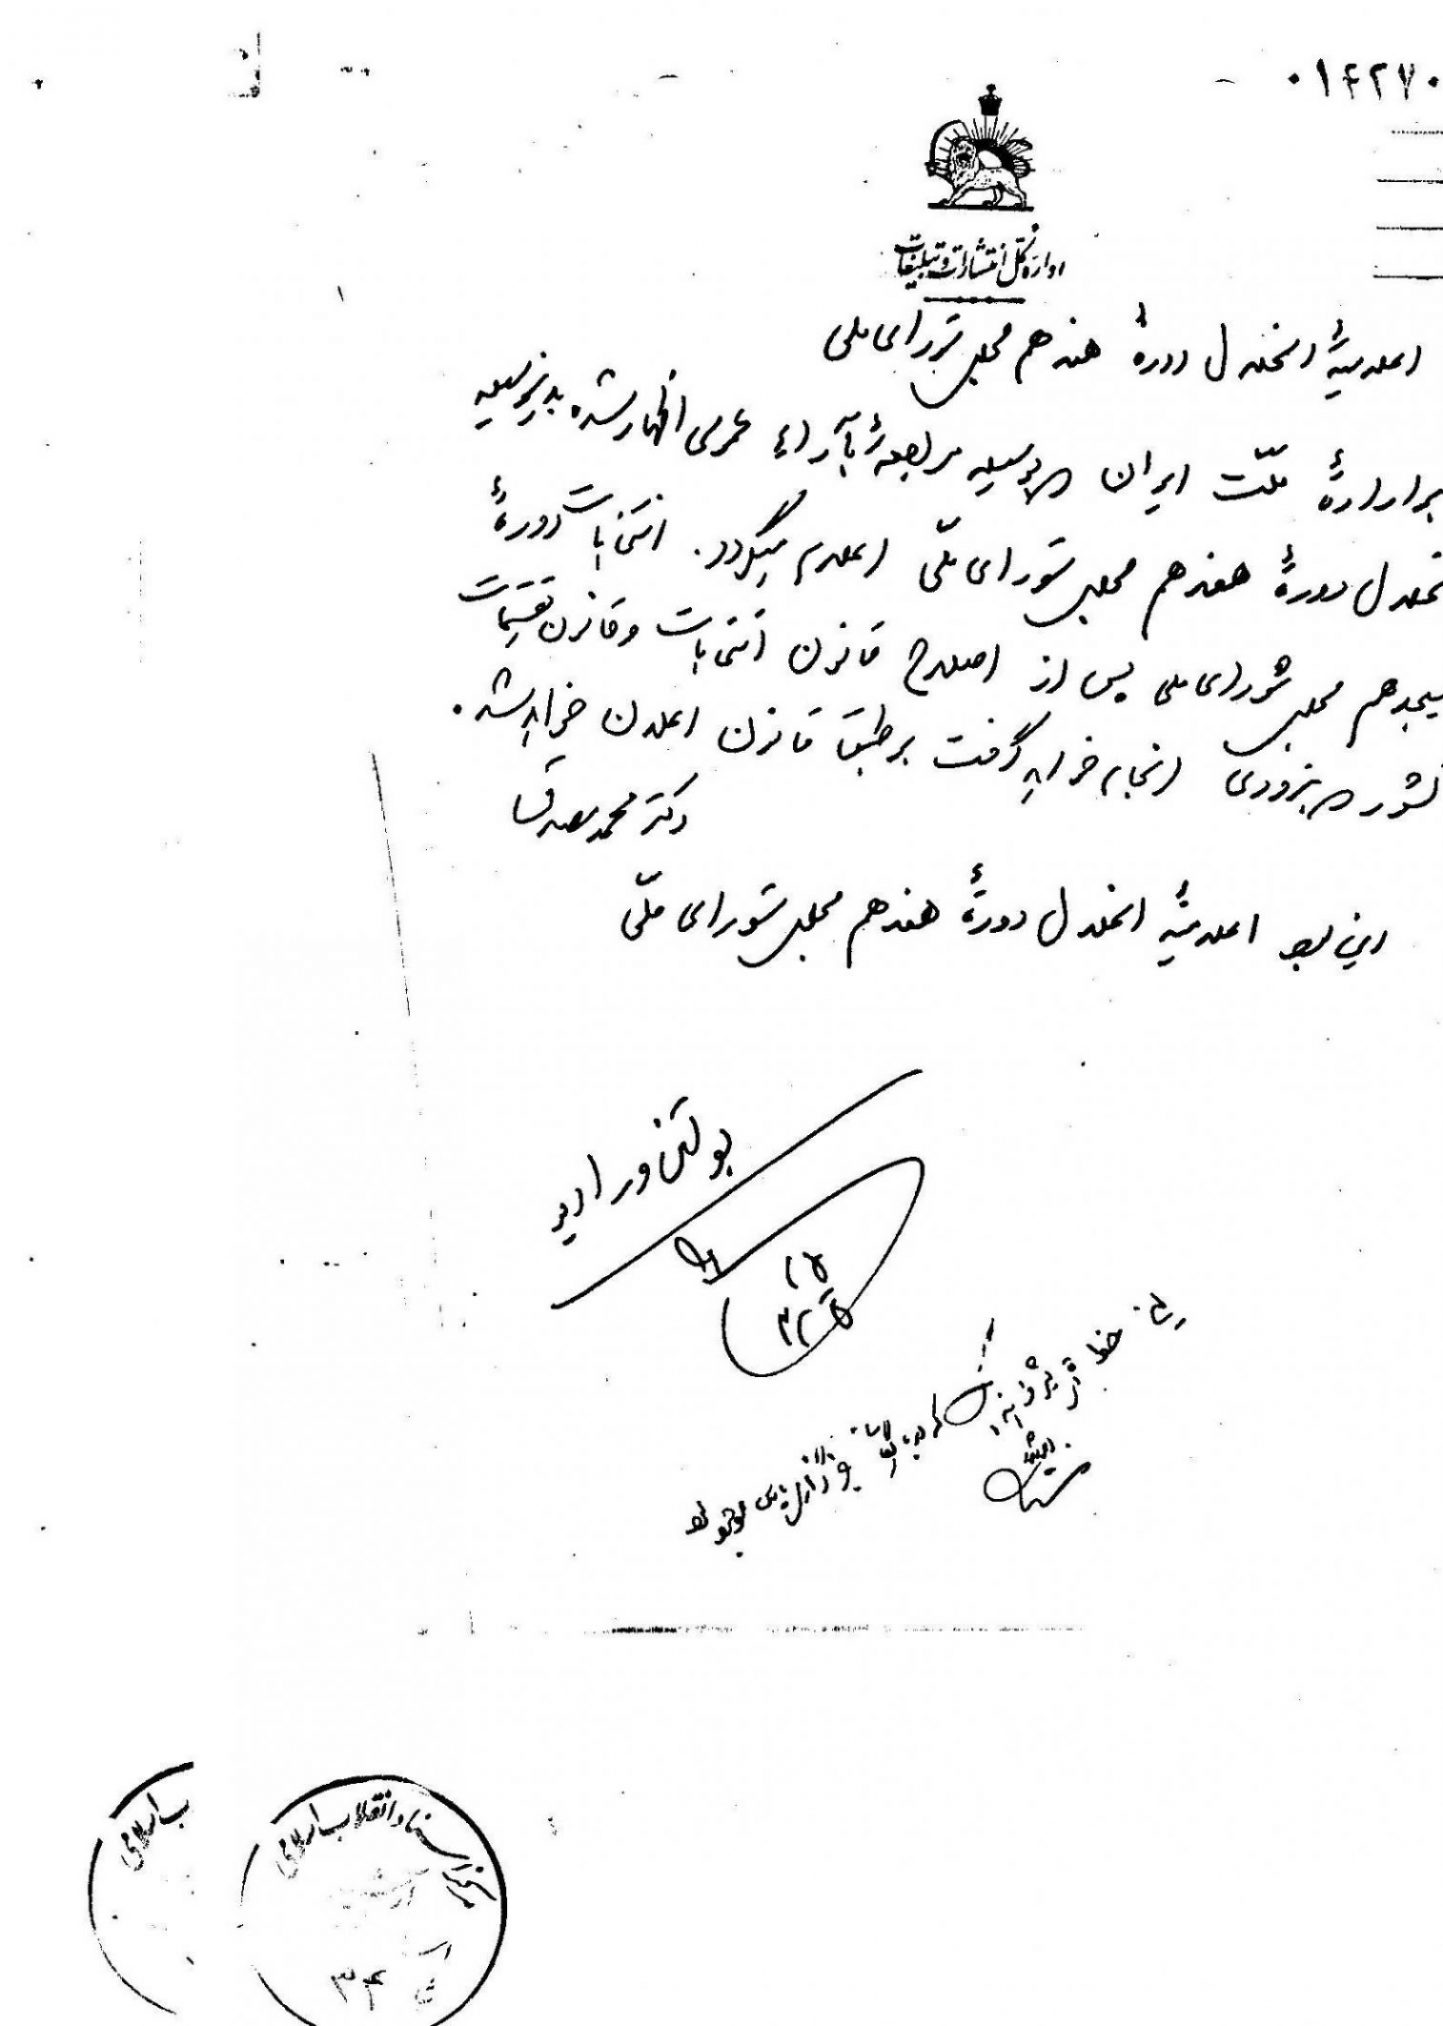 ۰۱۴۲۷۰
اداره کل انتشارات و تبلیغات
اعلامیهٔ انحلال دورهٔ هفدهم مجلس شورای ملی
بر ارادهٔ ملّت ایران که بوسیله مراجعهٔ بآراء عمومی اظهار شده بدینوسیله
نحلال دورهٔ هفدهم مجلس شورای ملّی اعلام میگردد. انتخابات دورهٔ
هیجدهم مجلس شورای ملی پس از اصلاح قانون انتخابات و قانون تقسیمات
کشور که بزودی انجام خواهد گرفت بر طبق قانون اعلان خواهد شد.
دکتر محمد مصدق
این بود اعلامیهٔ انحلال دورهٔ هفدهم مجلس شورای ملّی
بولتن و رادیو
خط
مرکز اسناد انقلاب اسلامی
آرشیو
۳۴
ب اسلامی